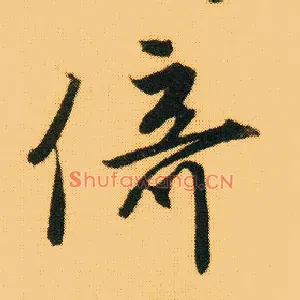 倚
Shufawang.CN